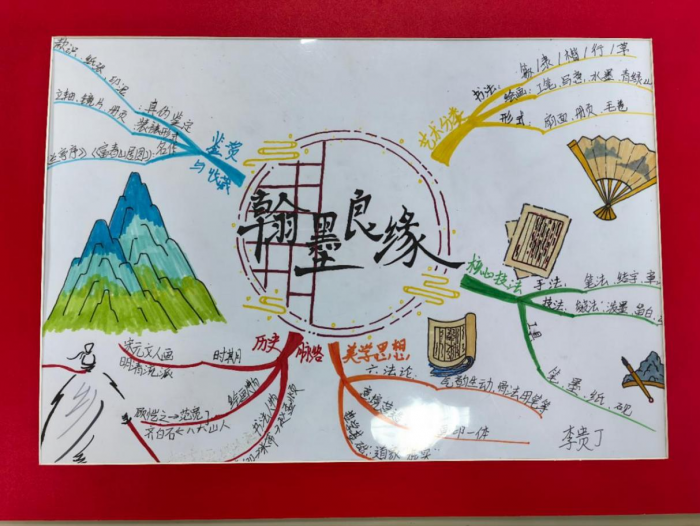 翰墨良缘
鉴赏
与收藏
真伪鉴定
款识、纸张、印泥
装裱形式
立轴、镜片、册页
名作
《富春山居图》
艺术分类
书法：篆/隶/楷/行/草
绘画：工笔、写意、水墨、青绿山
形式：扇面、册页、手卷
核心技法
手法：笔法、结字、章
技法：皴法、泼墨、留白
工具
笔、墨、纸、砚
历史
脉络
时期
宋元文人画
明清流派
绘画人物
顾恺之→范宽→
齐白石←八大山人
书法人物
美学思想
六法论：
气韵生动、骨法用笔等
印一体
李贵丁